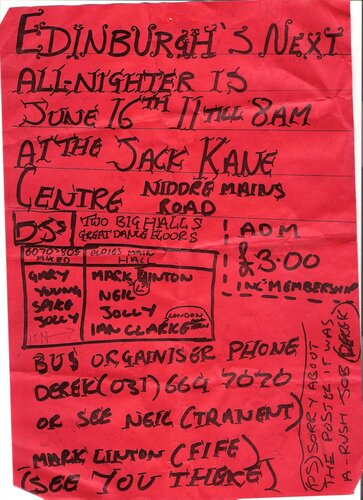 EDINBURGH'S NEXT
ALL-NIGHTER IS
JUNE 16TH 11 TILL 8AM
AT THE JACK KANE
CENTRE NIDDRE MAINS
ROAD
DJS
TWO BIG HALLS
GREAT DANCE FLOORS
60 70-80S
MIXED
GARY
YOUNG
SPIKE
JOLLY
OLDIES MAIN
HALL
MARK LINTON
NEIL
JOLLY
IAN CLARKE
LONDON
ADM
£3.00
INC MEMBERSHIP
BUS ORGAINISER PHONE
DEREK (031) 669 7070
OR SEE NEIL (TRANENT)
MARK LINTON (FIFE)
(SEE YOU THERE)
(PS) SORRY ABOUT
THE POSTER IT WAS
A-RUSH JOB (DEREK)